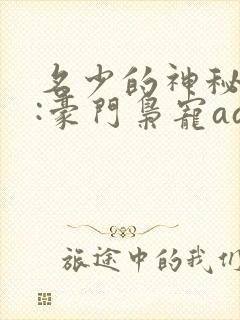 名少的神秘
:豪門梟寵a
旅途中的我们